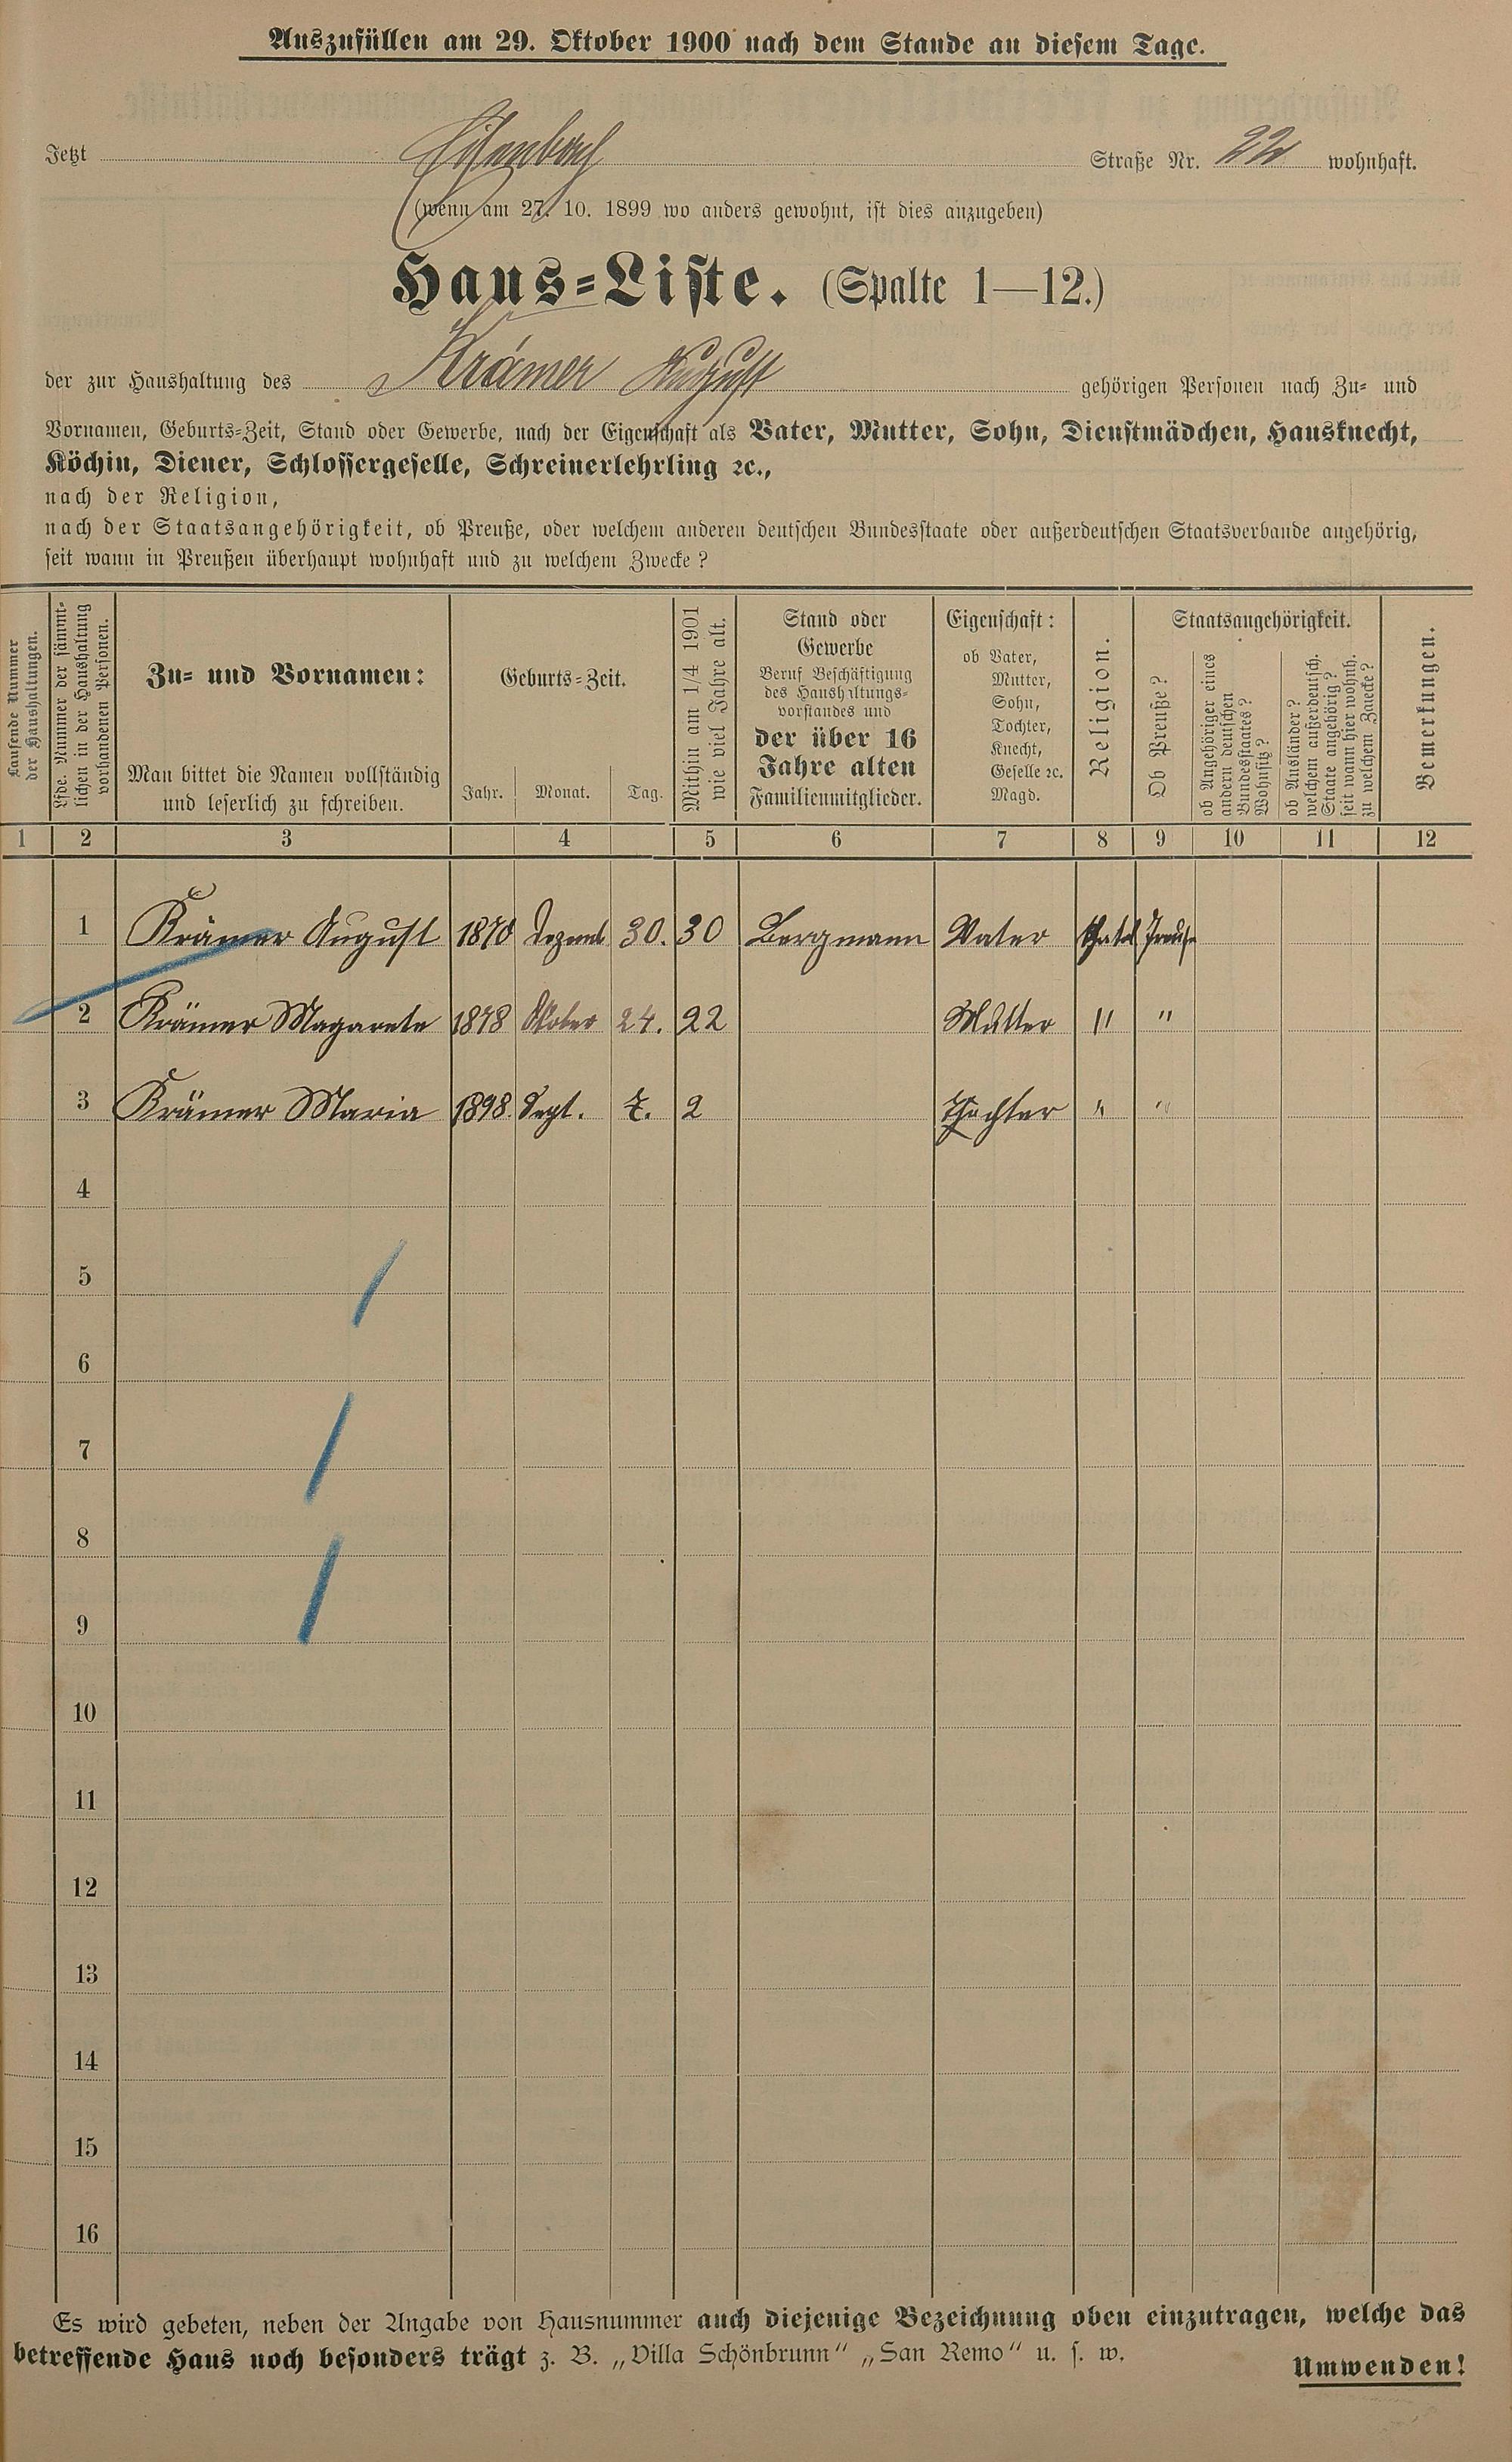 Auszufüllen am 29. Oktober 1900 nach dem Stande an diesem Tage.
Jetzt Eisenbach Straße Nr. 22 wohnhaft.
(wenn am 27. 10. 1899 wo anders gewohnt, ist dies anzugeben)
Haus-Liste. (Spalte 1—12.)
der zur Haushaltung des Krämer August gehörigen Personen nach Zu- und
Vornamen, Geburts-Zeit, Stand oder Gewerbe, nach der Eigenschaft als Vater, Mutter, Sohn, Dienstmädchen, Hausknecht,
Köchin, Diener, Schlossergeselle, Schreinerlehrling ꝛc.,
nach der Religion,
nach der Staatsangehörigkeit, ob Preuße, oder welchem anderen deutschen Bundesstaate oder außerdeutschen Staatsverbande angehörig,
seit wann in Preußen überhaupt wohnhaft und zu welchem Zwecke?
Laufende Nummer
der Haushaltungen.
Lfde. Nummer der sämmt-
lichen in der Haushaltung
vorhandenen Personen.
Zu- und Vornamen:
Man bittet die Namen vollständig
und leserlich zu schreiben.
Geburts-Zeit.
Jahr. Monat. Tag.
Mithin am 1/4 1901
wie viel Jahre alt.
Stand oder
Gewerbe
Beruf Beschäftigung
des Haushaltungs-
vorstandes und
der über 16
Jahre alten
Familienmitglieder.
Eigenschaft:
ob Vater,
Mutter,
Sohn,
Tochter,
Knecht,
Geselle ꝛc.
Magd.
Religion.
Staatsangehörigkeit.
Ob Preuße?
ob Angehöriger eines
andern deutschen
Bundesstaates?
Wohnsitz?
ob Ausländer?
welchem außerdeutsch.
Staate angehörig?
seit wann hier wohnh.
zu welchem Zwecke?
Bemerkungen.
1 2 3 4 5 6 7 8 9 10 11 12
1 Krämer August 1870 Dezemb 30. 30 Bergmann Vater Kathol Preuße
2 Krämer Magareta 1878 Oktober 24. 22 Mutter " "
3 Krämer Maria 1898. Sept. 7. 2 Thochter " "
4
5
6
7
8
9
10
11
12
13
14
15
16
Es wird gebeten, neben der Angabe von Hausnummer auch diejenige Bezeichnung oben einzutragen, welche das
betreffende Haus noch besonders trägt z. B. „Villa Schönbrunn“ „San Remo“ u. s. w.
Umwenden!